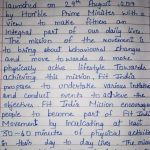 launched on 29th August 2019
by Hon'ble Prime Minister with a
view to make fitness an
integral part of our daily lives.
The mission of the movement is
to bring about behavioural changes
and move towards a more
physically active lifestyle. Towards
achieving this mission, Fit India
proposes to undertake various initiatives
and conduct events to achieve the
objectives Fit India Mission encourages
people to become part of Fit India
Movement by inculcating at least
30-60 minutes of physical activities
in their day to day lives. The mission